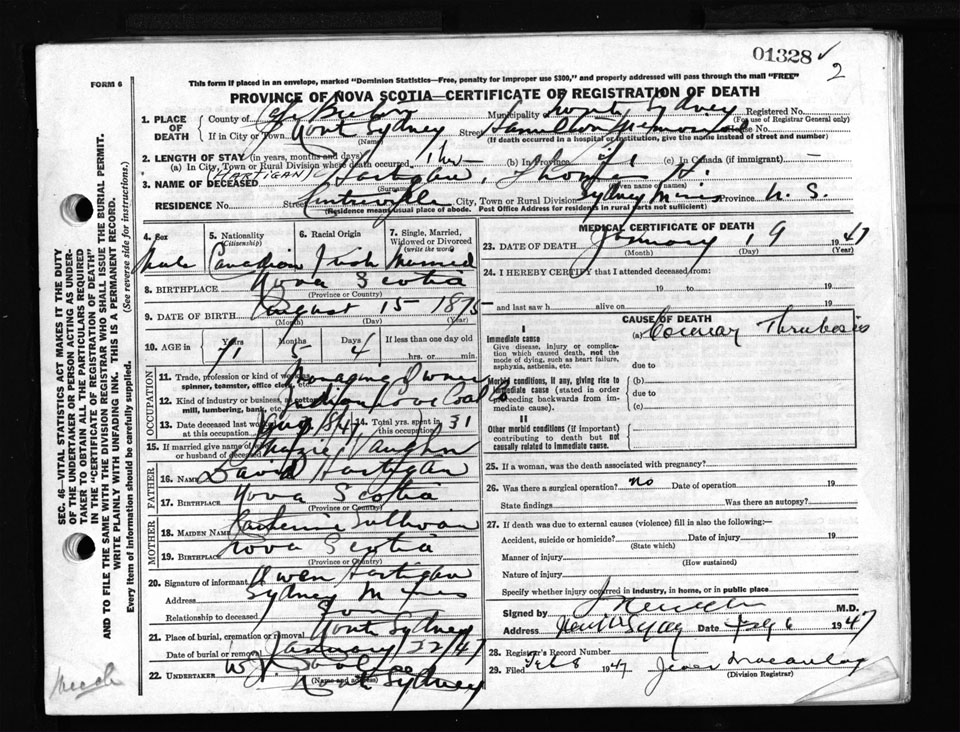 01328 ✓
2
FORM 6
This form if placed in an envelope, marked "Dominion Statistics—Free, penalty for improper use $300," and properly addressed will pass through the mail "FREE"
PROVINCE OF NOVA SCOTIA—CERTIFICATE OF REGISTRATION OF DEATH
1. PLACE OF DEATH County of Cape Breton Municipality North Sydney Registered No.
(For use of Registrar General only)
If in City or Town North Sydney Street Hamilton Memorial House No.
(Name) (If death occurred in a hospital or institution, give the name instead of street and number)
2. LENGTH OF STAY (in years, months and days)
(a) In City, Town or Rural Division where death occurred 1 hr (b) In Province 71 (c) In Canada (if immigrant) —
(HARTIGAN)
3. NAME OF DECEASED Hartigan, Thomas H.
(Surname) (Given name or names)
RESIDENCE No. Street Centreville City, Town or Rural Division Sydney Mines Province N. S.
(Residence means usual place of abode. Post Office Address for residents in rural parts not sufficient)
4. Sex 5. Nationality (Citizenship) 6. Racial Origin 7. Single, Married, Widowed or Divorced (write the word)
Male Canadian Irish Married
8. BIRTHPLACE Nova Scotia
(Province or Country)
9. DATE OF BIRTH August 15 1875
(Month) (Day) (Year)
10. AGE in Years Months Days If less than one day old
71 5 4 hrs. or min.
OCCUPATION
11. Trade, profession or kind of work as spinner, teamster, office clerk, etc. Managing Owner
12. Kind of industry or business, as cotton mill, lumbering, bank, etc. Indian Cove Coal Co
13. Date deceased last worked at this occupation 14. Total yrs. spent in this occupation 31
15. If married give name of wife or husband of deceased Vaughn
FATHER
16. NAME David Hartigan
17. BIRTHPLACE Nova Scotia
(Province or Country)
MOTHER
18. MAIDEN NAME Katherine Sullivan
19. BIRTHPLACE Nova Scotia
(Province or Country)
20. Signature of informant Owen Hartigan
Address Sydney Mines
Relationship to deceased Son
21. Place of burial, cremation or removal North Sydney
Date of burial or removal January 22/47
22. UNDERTAKER W.
(Name and address) North Sydney
MEDICAL CERTIFICATE OF DEATH
23. DATE OF DEATH January 19 1947
(Month) (Day) (Year)
24. I HEREBY CERTIFY that I attended deceased from:
19 to 19
and last saw h alive on 19
CAUSE OF DEATH
I
Immediate cause (a) Coronary Thrombosis
Give disease, injury or complication which caused death, not the mode of dying, such as heart failure, asphyxia, asthenia, etc.
due to
Morbid conditions, if any, giving rise to immediate cause (stated in order proceeding backwards from immediate cause). (b)
due to
(c)
II
Other morbid conditions (if important) contributing to death but not causally related to immediate cause.
25. If a woman, was the death associated with pregnancy?
26. Was there a surgical operation? no Date of operation 19
State findings Was there an autopsy?
27. If death was due to external causes (violence) fill in also the following:—
Accident, suicide or homicide? Date of injury 19
(State which)
Manner of injury
(How sustained)
Nature of injury
Specify whether injury occurred in industry, in home, or in public place
Signed by M.D.
Address North Sydney Date Feb 6 1947
28. Registrar's Record Number
29. Filed Feb 8 1947 Macaulay
(Division Registrar)
SEC. 46—VITAL STATISTICS ACT MAKES IT THE DUTY
OF THE UNDERTAKER OR PERSON ACTING AS UNDER-
TAKER TO OBTAIN ALL THE PARTICULARS REQUIRED
IN THE "CERTIFICATE OF REGISTRATION OF DEATH"
AND TO FILE THE SAME WITH THE DIVISION REGISTRAR WHO SHALL ISSUE THE BURIAL PERMIT.
WRITE PLAINLY WITH UNFADING INK. THIS IS A PERMANENT RECORD.
Every item of information should be carefully supplied. (See reverse side for instructions.)